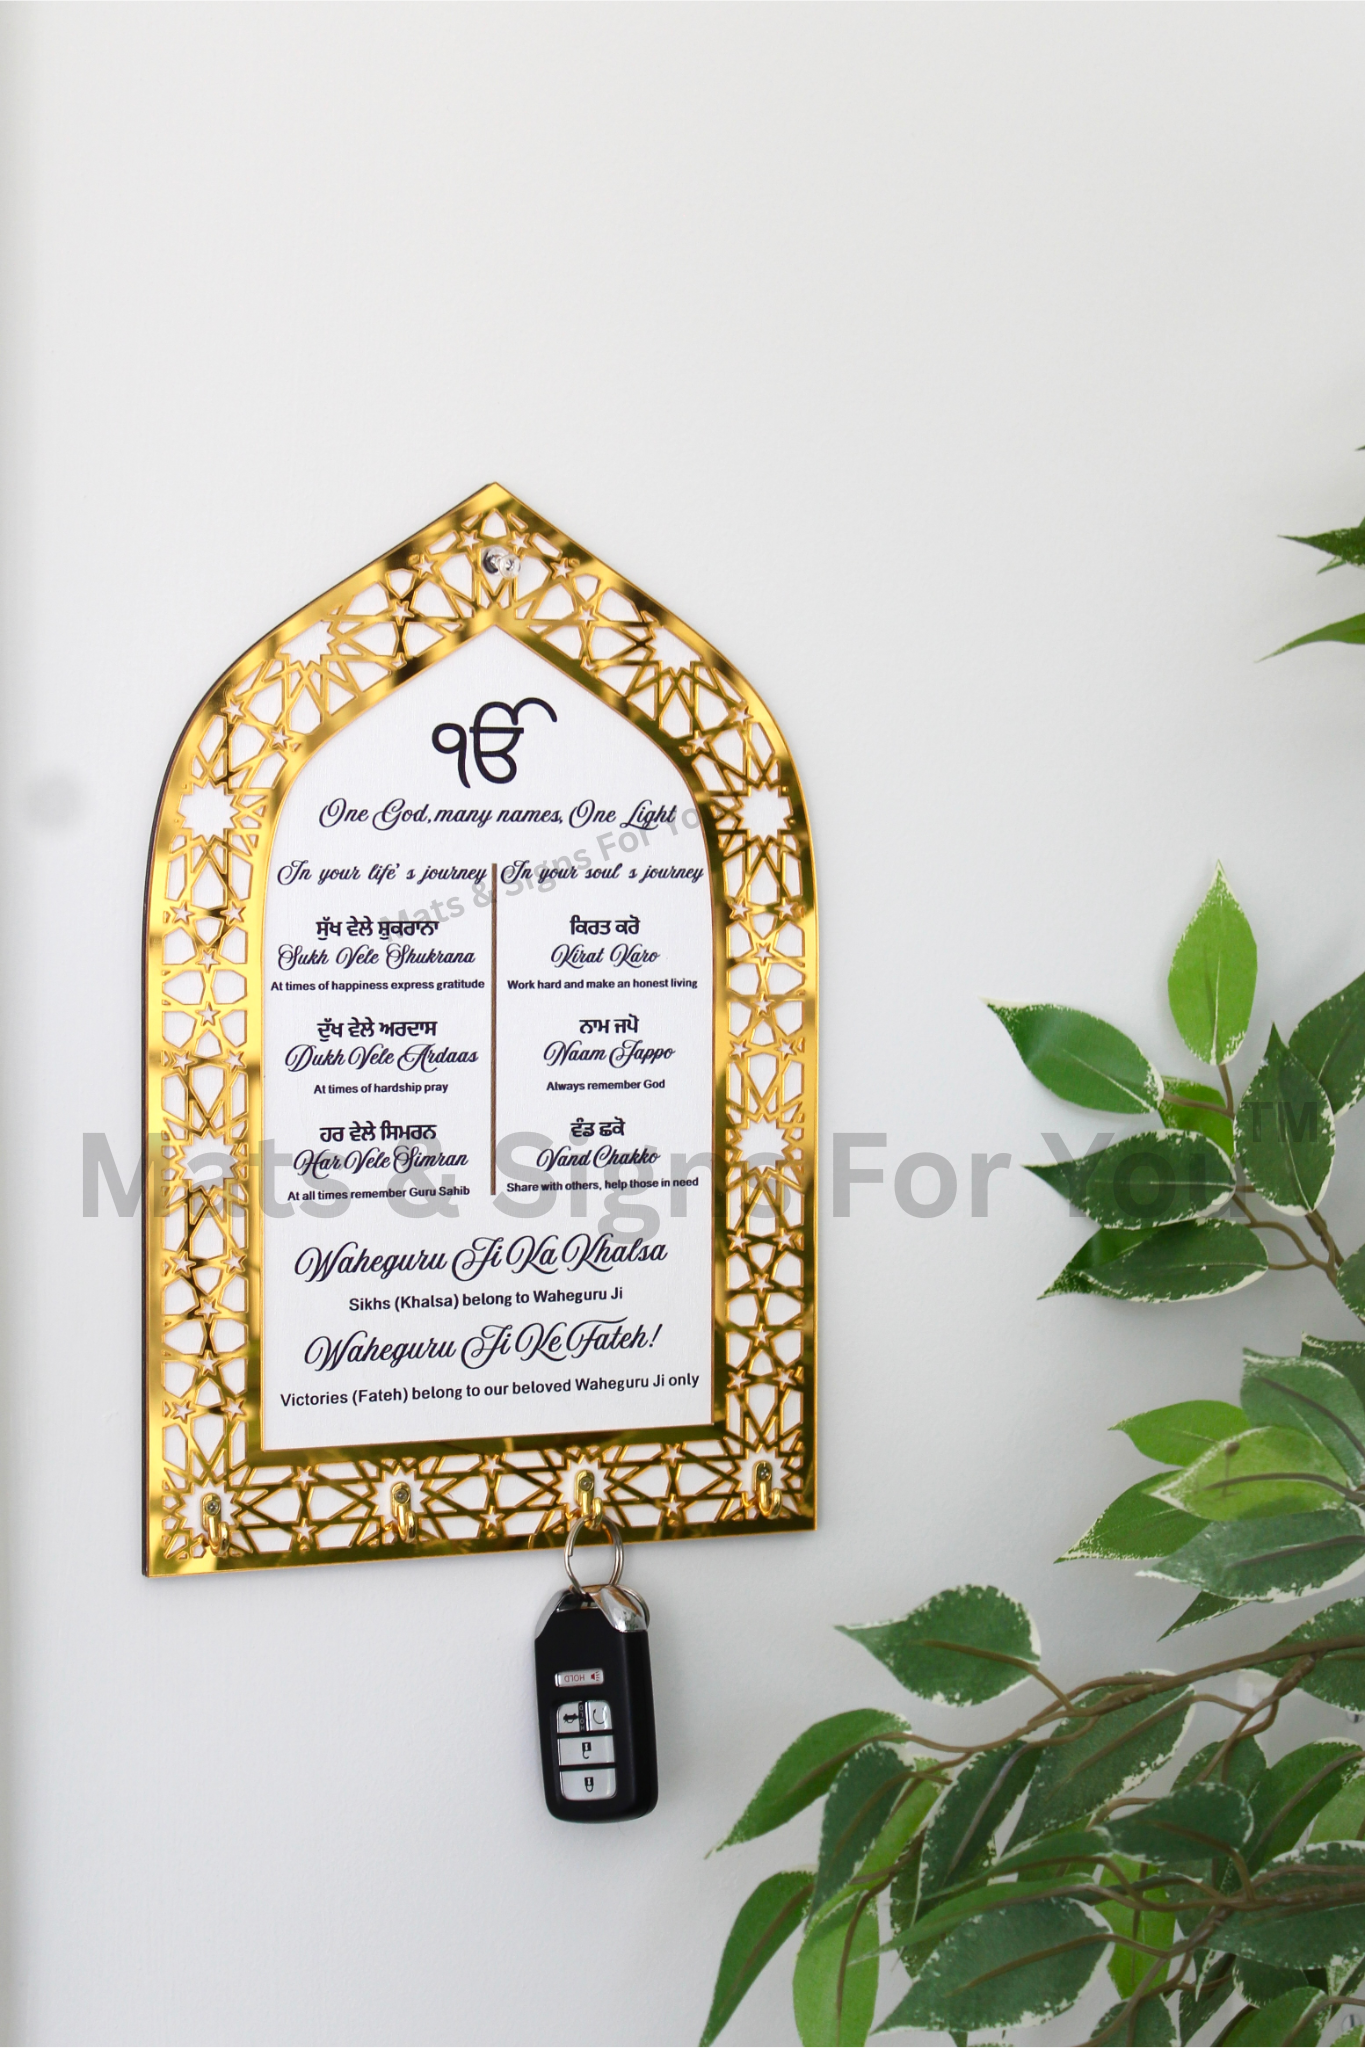 ੴ
One God, many names, One Light
In your life's journey
ਸੁੱਖ ਵੇਲੇ ਸ਼ੁਕਰਾਨਾ
Sukh Vele Shukrana
At times of happiness express gratitude
ਦੁੱਖ ਵੇਲੇ ਅਰਦਾਸ
Dukh Vele Ardaas
At times of hardship pray
ਹਰ ਵੇਲੇ ਸਿਮਰਨ
Har Vele Simran
At all times remember Guru Sahib
In your soul's journey
ਕਿਰਤ ਕਰੋ
Kirat Karo
Work hard and make an honest living
ਨਾਮ ਜਪੋ
Naam Jappo
Always remember God
ਵੰਡ ਛਕੋ
Vand Chakko
Share with others, help those in need
Waheguru Ji Ka Khalsa
Sikhs (Khalsa) belong to Waheguru Ji
Waheguru Ji Ke Fateh!
Victories (Fateh) belong to our beloved Waheguru Ji only
Mats & Signs For You
Mats & Signs For You™
HOLD